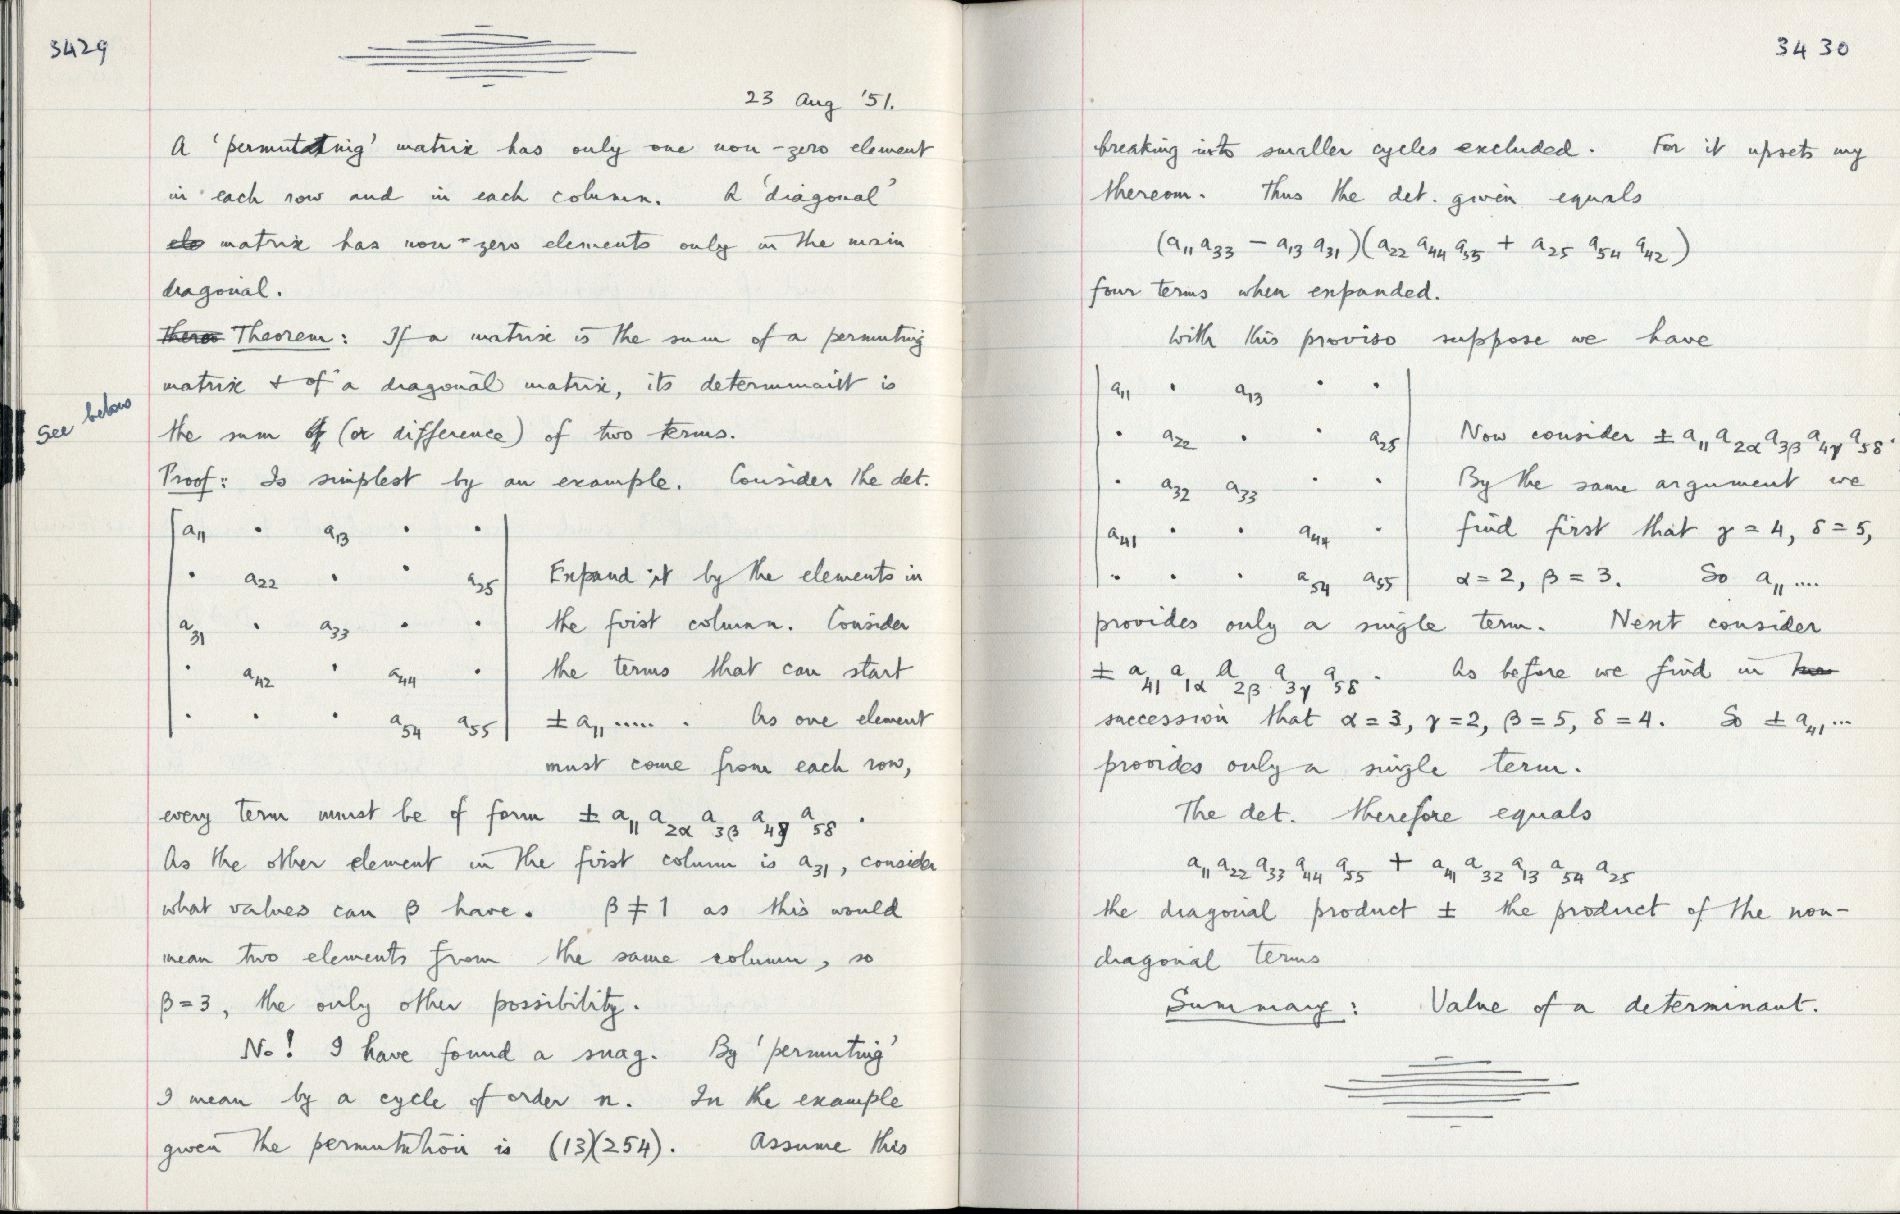 3429
23 Aug '51.
A 'permutating' matrix has only one non-zero element
in each row and in each column. A 'diagonal'
ele matrix has non-zero elements only in the main
diagonal.
there Theorem: If a matrix is the sum of a permuting
matrix & of a diagonal matrix, its determinant is
See below
the sum of (or difference) of two terms.
Proof: Is simplest by an example. Consider the det.
a₁₁ · a₁₃ · ·
· a₂₂ · · a₂₅ Expand it by the elements in
a₃₁ · a₃₃ · · the first column. Consider
· a₄₂ · a₄₄ · the terms that can start
· · · a₅₄ a₅₅ ± a₁₁ ..... . As one element
must come from each row,
every term must be of form ± a₁₁ a₂α a₃β a₄γ a₅δ .
As the other element in the first column is a₃₁, consider
what values can β have. β ≠ 1 as this would
mean two elements from the same column, so
β = 3, the only other possibility.
No! I have found a snag. By 'permuting'
I mean by a cycle of order n. In the example
given the permutation is (13)(254). Assume this
3430
breaking into smaller cycles excluded. For it upsets my
thereom. Thus the det. given equals
(a₁₁ a₃₃ − a₁₃ a₃₁)(a₂₂ a₄₄ a₅₅ + a₂₅ a₅₄ a₄₂)
four terms when expanded.
With this proviso suppose we have
a₁₁ · a₁₃ · ·
· a₂₂ · · a₂₅ Now consider ± a₁₁ a₂α a₃β a₄γ a₅δ.
· a₃₂ a₃₃ · · By the same argument we
a₄₁ · · a₄₄ · find first that γ = 4, δ = 5,
· · · a₅₄ a₅₅ α = 2, β = 3. So a₁₁ ....
provides only a single term. Next consider
± a₄₁ a₁α a₂β a₃γ a₅δ . As before we find in
succession that α = 3, γ = 2, β = 5, δ = 4. So ± a₄₁ ...
provides only a single term.
The det. therefore equals
a₁₁ a₂₂ a₃₃ a₄₄ a₅₅ + a₄₁ a₃₂ a₁₃ a₅₄ a₂₅
the diagonal product ± the product of the non-
diagonal terms
Summary: Value of a determinant.